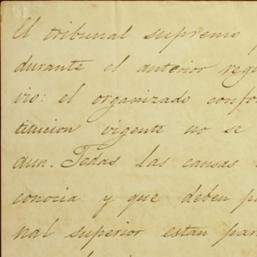 El tribunal supremo
durante el anterior regi
vis: el organizado confor
titucion vigente no se
aun. Todas las causas
conocia y que deben p
nal superior estan par